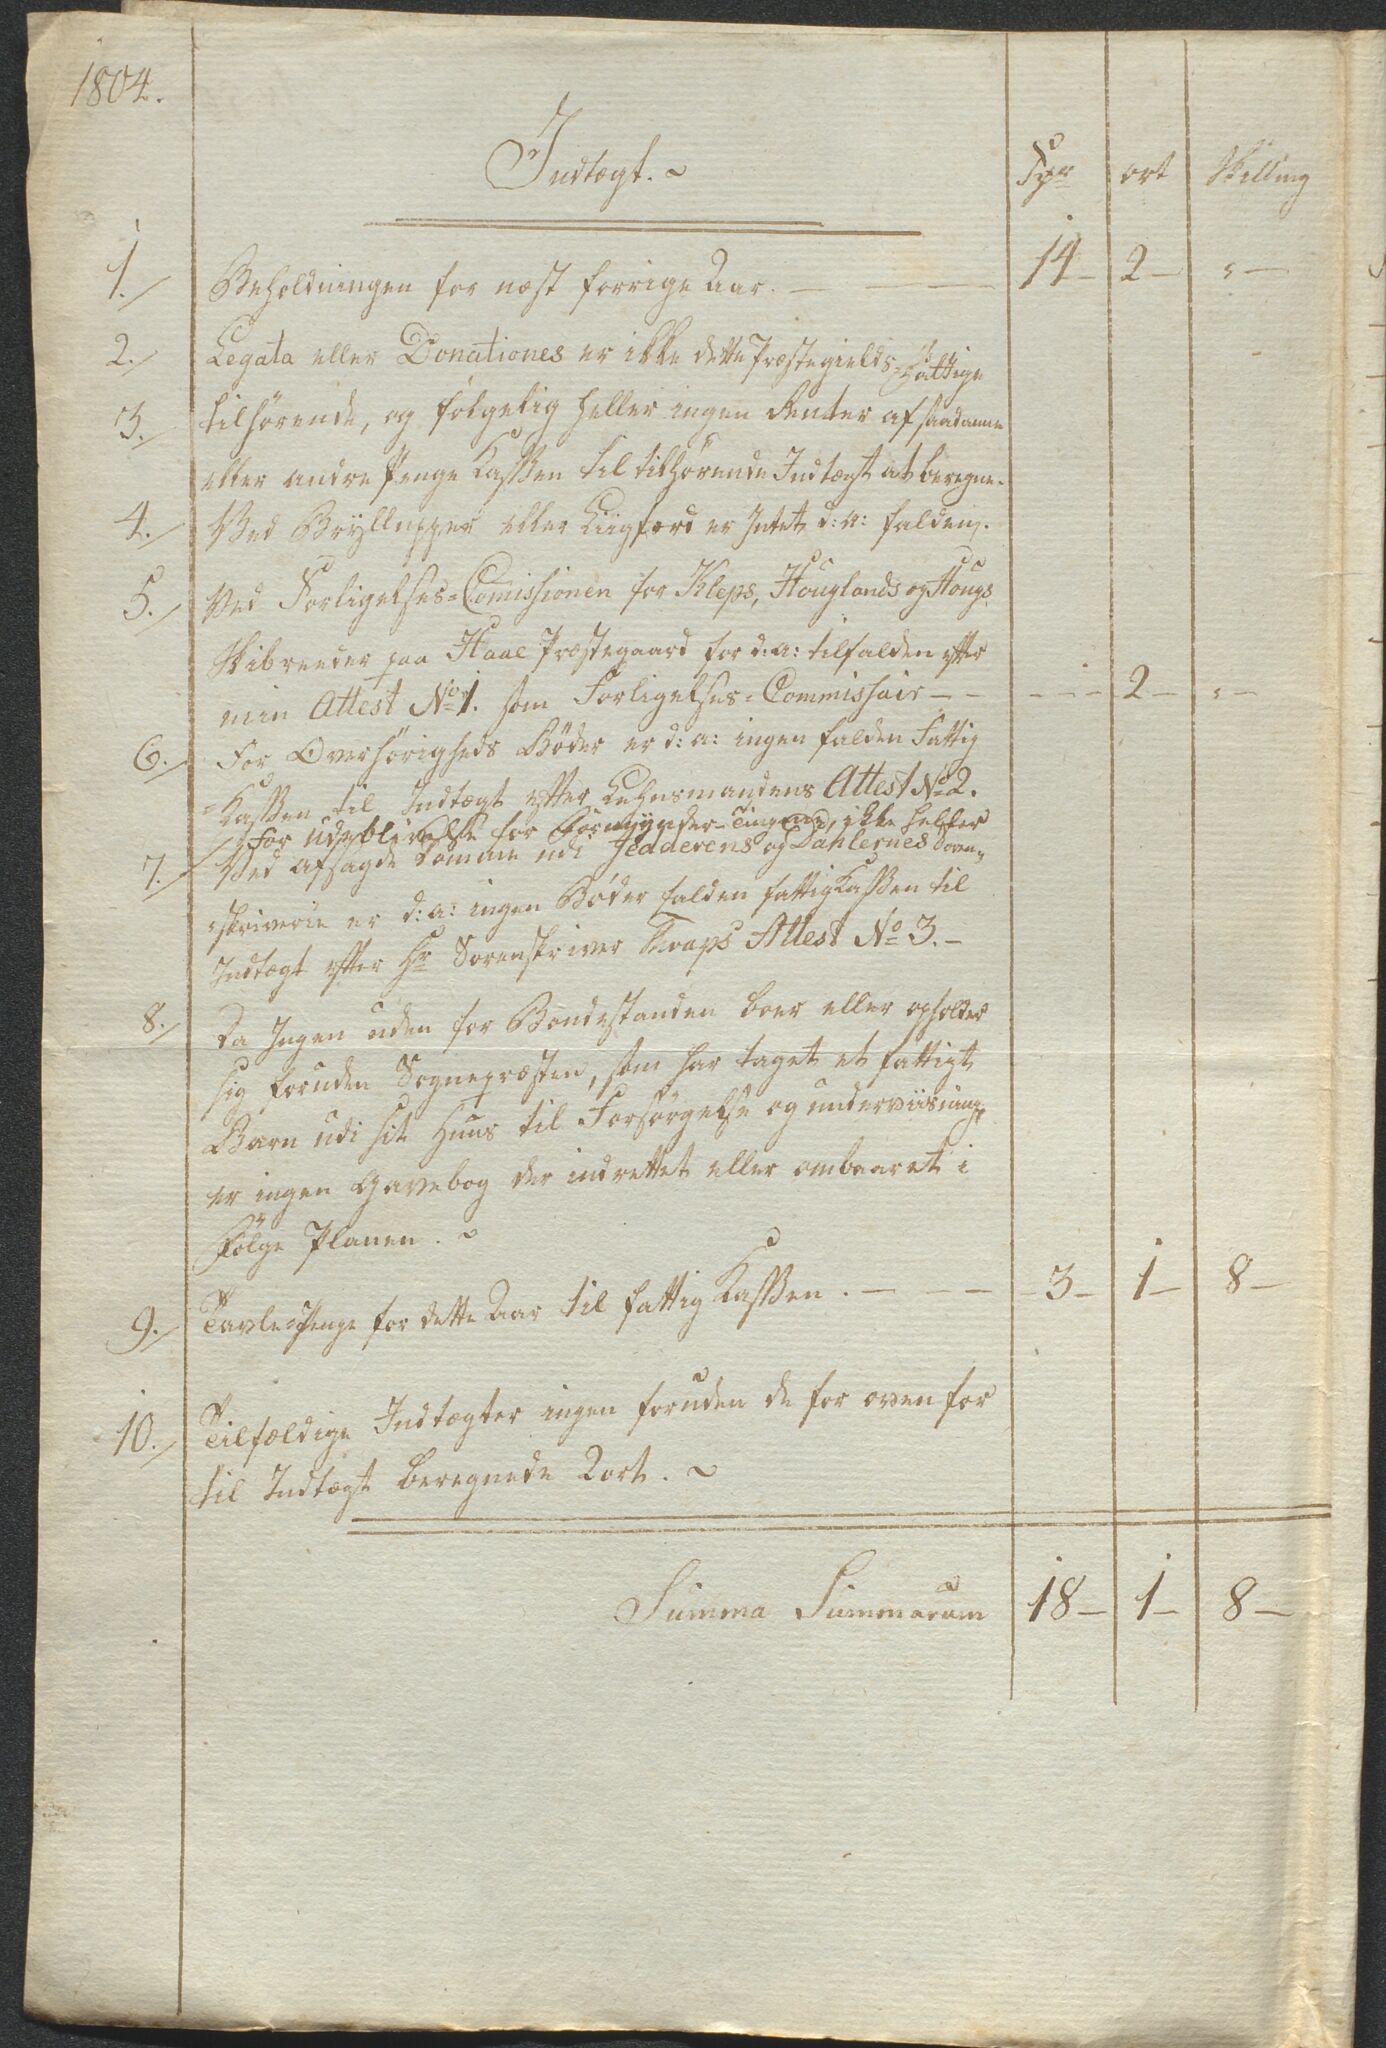 1804.
Indtægt.
Spr ort Skilling
1. Beholdningen for næst forrige Aar. 14 2 "
2. Legata eller Donationes er ikke dette Præstegields Fattige
3. tilhörende, og fölgelig heller ingen Renter af saadanne
eller andre Penge Kassen til tilhörende Indtægt at beregne.
4. Ved Bryllupper eller Liigfærd er Intet d: a: falden.
5. Ved Forligelses-Comissionen for Kleps, Houglands og Hougs
Skibreeder paa Haae Præstegaard for d: a: tilfalden efter
min Attest No 1. som Forligelses-Commissair 2 "
6. For Overhörigheds Böder er d: a: ingen falden Fattig
-Kassen til Indtægt efter Lehnsmandens Attest No 2.
for udeblivelse for Formynder-Tingene, ikke heller
7. Ved afsagde Domme udi Jedderens og Dahlernes Soren-
skriverie er d: a: ingen Böder falden fattig Kassen til
Indtægt efter Hr Sorenskriver Attest No 3.
8. Da Ingen uden for Bondestanden boer eller opholder
sig foruden Sognepræsten, som har taget et fattigt
Barn udi sit Huus til Forsörgelse og underviisning,
er ingen Gavebog der indrettet eller ombaaret i
Fölge Planen.
9. Tavle-Penge for dette Aar til fattig Kassen. 3 1 8
10. Tilfældige Indtægter ingen foruden de for oven for
til Indtægt beregnede 2 ort.
Summa Summarum 18 1 8